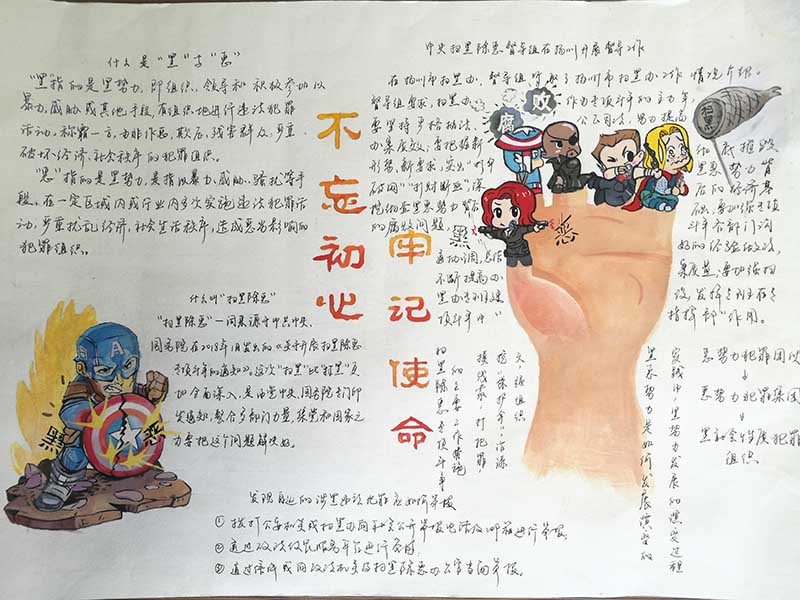 什么是“黑”与“恶”
“黑”指的是黑势力，即组织、领导和积极参加以
暴力、威胁或其他手段，有组织地进行违法犯罪
活动，称霸一方，为非作恶，欺压、残害群众，严重
破坏经济、社会秩序的犯罪组织。
“恶”指的是黑势力，是指以暴力、威胁、骚扰等手
段，在一定区域内或行业内多次实施违法犯罪活
动，严重扰乱经济、社会生活秩序，造成恶劣影响的
犯罪组织。
什么叫“扫黑除恶”
“扫黑除恶”一词来源于中共中央、
国务院在2018年1月发出的《关于开展扫黑除恶
专项斗争的通知》。这次“扫黑”比“打黑”更
加全面深入，是由党中央、国务院专门印
发通知，整合多部门力量，集党和国家之
力要把这个问题解决好。
黑 恶
不忘初心
牢记使命
中央扫黑除恶督导组在扬州开展督导工作
在扬州市扫黑办，督导组听取了扬州市扫黑办工作情况介绍。
督导组要求，扫黑办
作为专项斗争的主力军，
要坚持严格执法、
公正司法，努力提高
办案质效；要把握新
形势、新要求，突出“打伞
破网”“打财断血”，深
的腐败问题，
不断提高办
项斗争中
和底推毁
黑恶势力背
后的经济基
础；
斗争各部门沟
好的经验做法，
案质量；要加强扫
设，发挥专项主在专
指挥部”作用。
腐 败
扫黑
黑 恶
扫黑除恶专项斗争
的主要工作措施
摸线索，打犯罪，
挖“保护伞”，治源
头，强组织
黑恶势力是如何发展演变的
实践中，黑势力发展的演变过程
恶势力犯罪团伙
↓
恶势力犯罪集团
↓
黑社会性质犯罪
组织
发现身边的涉黑涉恶犯罪应如何举报
① 拨打公安和各级扫黑办向社会公开举报电话及邮箱进行举报。
② 通过政法综合服务平台进行举报；
③ 通过信件或同政法机关及扫黑除恶办公室当面举报。